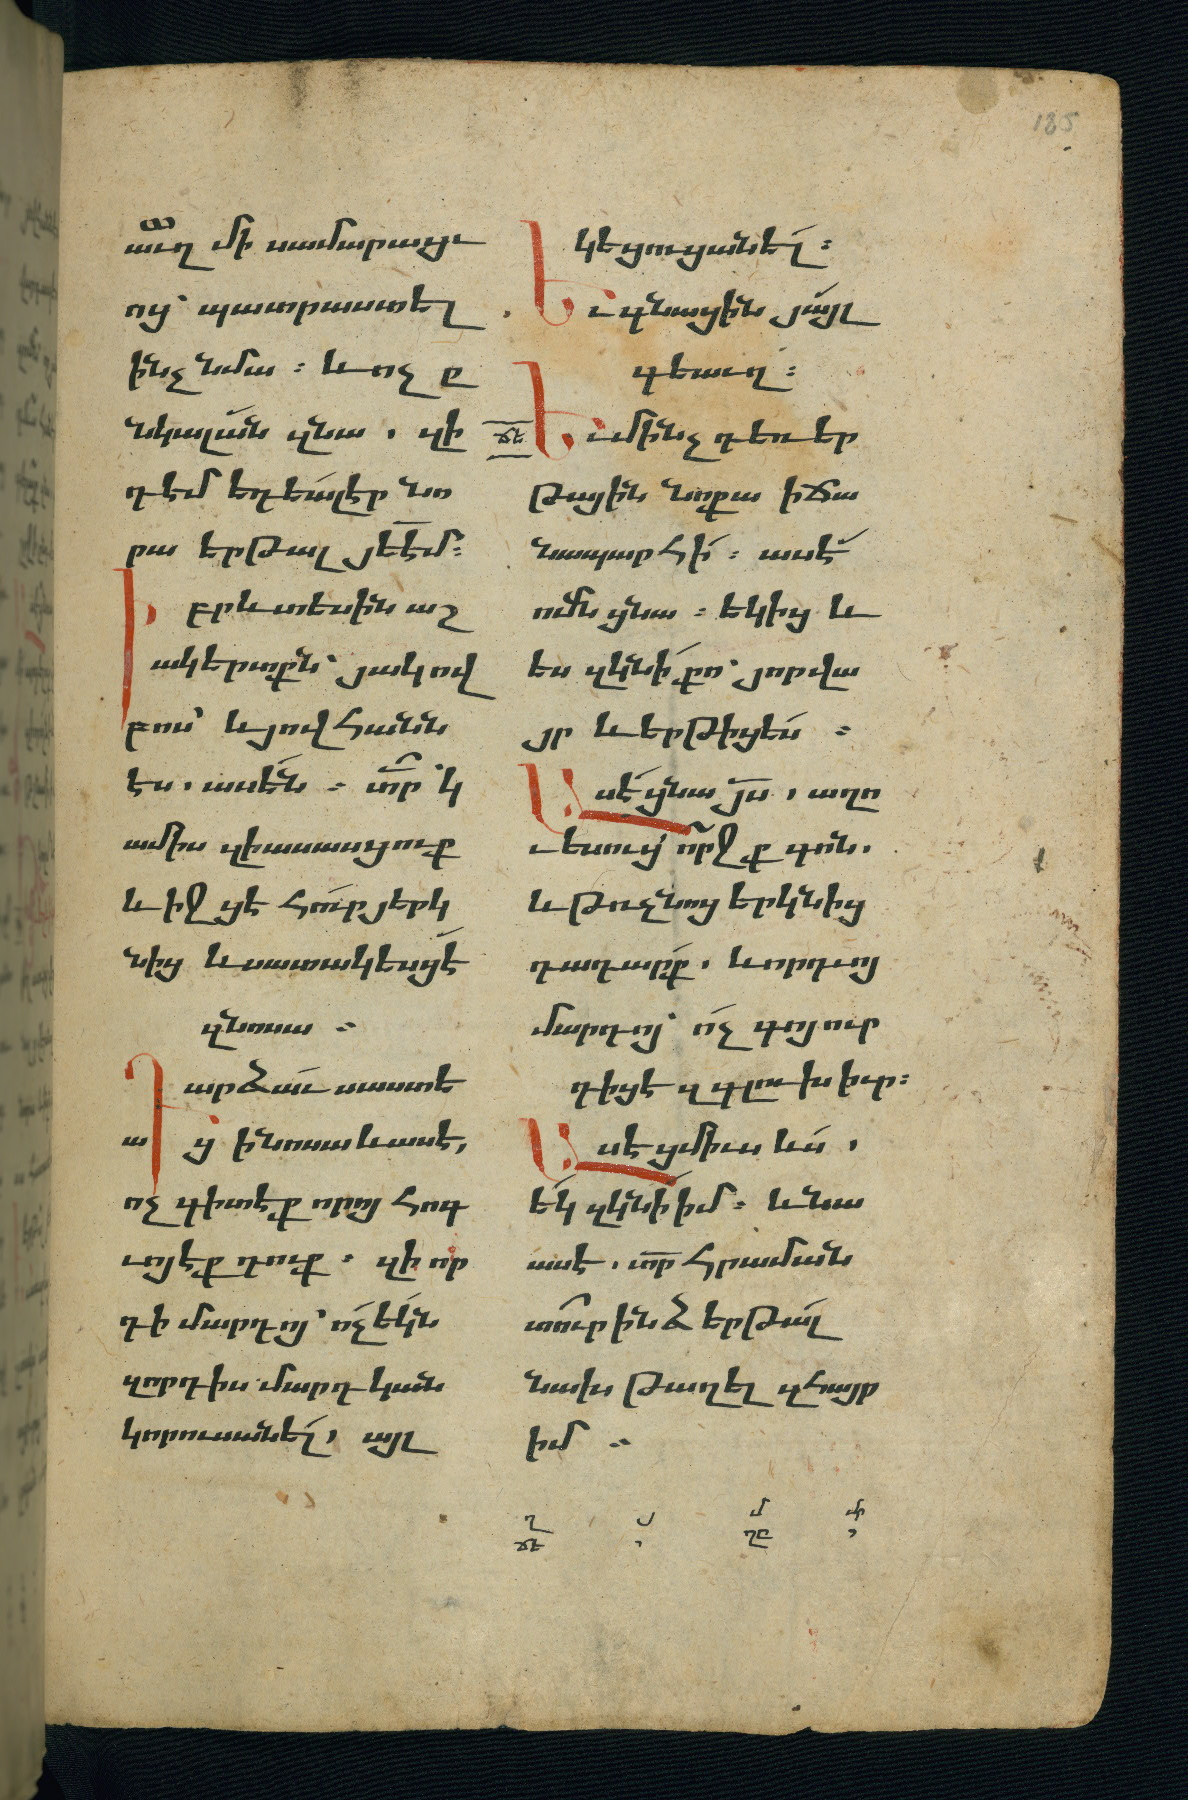 185
աւղ մի սամարացւ
ոց՝ պատրաստել
ինչ նմա։ և ոչ ը
նկալան զնա, զի
դեմ եդեալ էր նո
րա երթալ յեէմ։
Իբրև տեսին աշ
ակերտքն՝ յակով
բոս՝ և յովհանն
էս, ասեն։ տր՝ կ
ամիս զի ասասցուք
և իջցէ հուր յերկ
նից և սատակեսցէ
զնոսա։
Դարձաւ սաստե
աց ի նոսա և ասէ,
ոչ գիտէք որոյ հոգ
ւոյ էք դուք. զի որ
դի մարդոյ՝ ոչ եկն
զոգիս մարդկան
կորուսանել, այլ
կեցուցանել։
Եւ գնացին յայլ
գեաւղ։
ճե
Եւ մինչ դեռ եր
թային նոքա ի ճա
նապարհի։ ասէ
ոմն ցնա։ եկից և
ես զկնի քո՝ յորվա
յր և երթիցես։
Ասէ ցնա յս, աղո
ւեսուց որջք գոն,
և թռչնոց երկնից
դադարք. և որդւոյ
մարդոյ՝ ոչ գոյ ուր
դիցէ զգլուխ իւր։
Ասէ ցմիւս ևս,
եկ զկնի իմ։ և նա
ասէ. տր հրաման
տուր ինձ երթալ
նախ թաղել զհայր
իմ։
ղ
ճե
մ
ղը